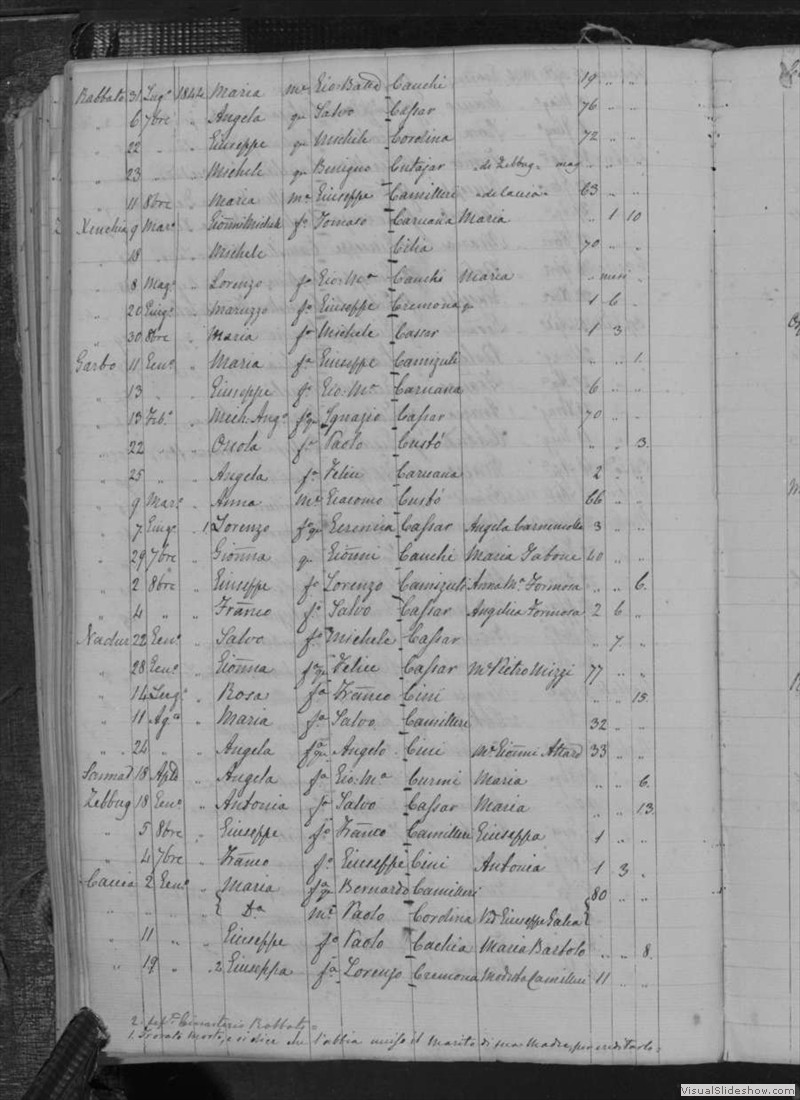 Rabbato 31 Lug° 1844 Maria me Gio Batta Cauchi 19 " "
" 6 7bre " Angela qu Salvo Cassar 76 " "
" 22 " " Giuseppe qu Michele Cordina 72 " "
" 23 " " Michele qu Benigno Cutajar de Zebbug mag " " "
" 11 8bre " Maria me Giuseppe Camilleri de Caccia 63 " "
Xeuchia 9 Mar° " Gionni Michele fo Tomaso Caruana Maria " 1 10
" 18 " " Michele Cilia 70 " "
" 8 Mag° " Lorenzo fo Gio: Ma Cauchi Maria " mesi "
" 20 Giug° " Maruzzo fo Giuseppe Cremona 1 6 "
" 30 8bre " Maria fa Michele Cassar 1 3 "
Garbo 11 Gen° " Maria fa Giuseppe Camizuli " " 1
" 13 " " Giuseppe fo Gio: Ma Caruana 6 " "
" 13 Feb° " Mich: Ang° Ignazio Cassar 70 " "
" 22 " " Orsola fa Paolo Custó " " 3
" 25 " " Angela fa Felice Caruana 2 " "
" 9 Mar° " Anna me Giacomo Custó 66 " "
" 7 Giug° " 1 Lorenzo Cassar Angela 3 " "
" 29 7bre " Gionna qu Gionni Cauchi Maria Tabone 40 " "
" 2 8bre " Giuseppe fo Lorenzo Camizuli Anna Ma Formosa " " 6
" 4 " " Franco fo Salvo Cassar Angelica Formosa 2 6 "
Nadur 22 Gen° " Salvo fo Michele Cassar " 7 "
" 28 Gen° " Gionna Felice Cassar Me Pietro Mizzi 77 " "
" 14 Lug° " Rosa fa Franco Cini " " 15
" 11 Ag° " Maria fa Salvo Camilleri 32 " "
" 24 " " Angela Angelo Cini Me Gionni Attard 33 " "
Sannat 18 Aple " Angela fa Gio: Ma Curmi Maria " " 6
Zebbug 18 Gen° " Antonia fa Salvo Cassar Maria " " 13
" 5 8bre " Giuseppe fo Franco Camilleri Giuseppa 1 " "
" 4 7bre " Franco fo Giuseppe Cini Antonia 1 3 "
Caccia 2 Gen° " Maria Bernardo Camilleri 80 " "
" " " " Da me Paolo Cordina Giuseppe Galia
" 11 " " Giuseppe fo Paolo Cachia Maria Bartolo " " 8
" 19 " 2 Giuseppa fa Lorenzo Cremona Modesta Camilleri 11 " "
2. Cimiterio Rabbato =
1. Trovato morto, e si dice che l'abbia ucciso il Marito di sua Madre, per ereditarlo =
VisualSlideshow.com